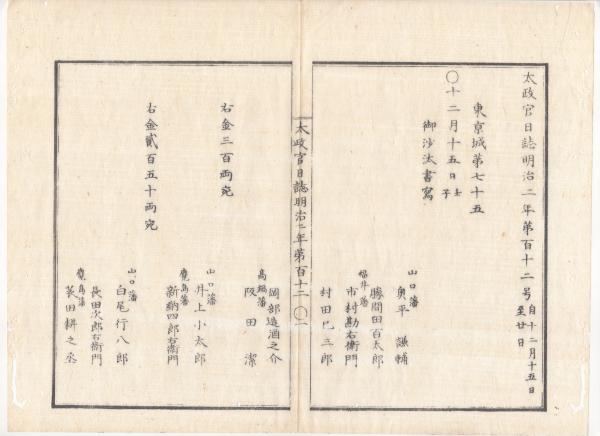 太政官日誌明治二年第百十二号 自十二月十五日
至廿日
東京城第七十五
〇十二月十五日 壬子
御沙汰書寫
山口藩
奥平謙輔
勝間田百太郎
福井藩
市村勘右衛門
村田巳三郎
太政官日誌明治二年第百十二 〇一
岡部造酒之介
高鍋藩
阪田潔
右金三百両宛
山口藩
井上小太郎
鹿島藩
新納四郎右衛門
右金貳百五十両宛
山口藩
白尾行八郎
長田次郎右衛門
鹿島藩
蓑田耕之丞